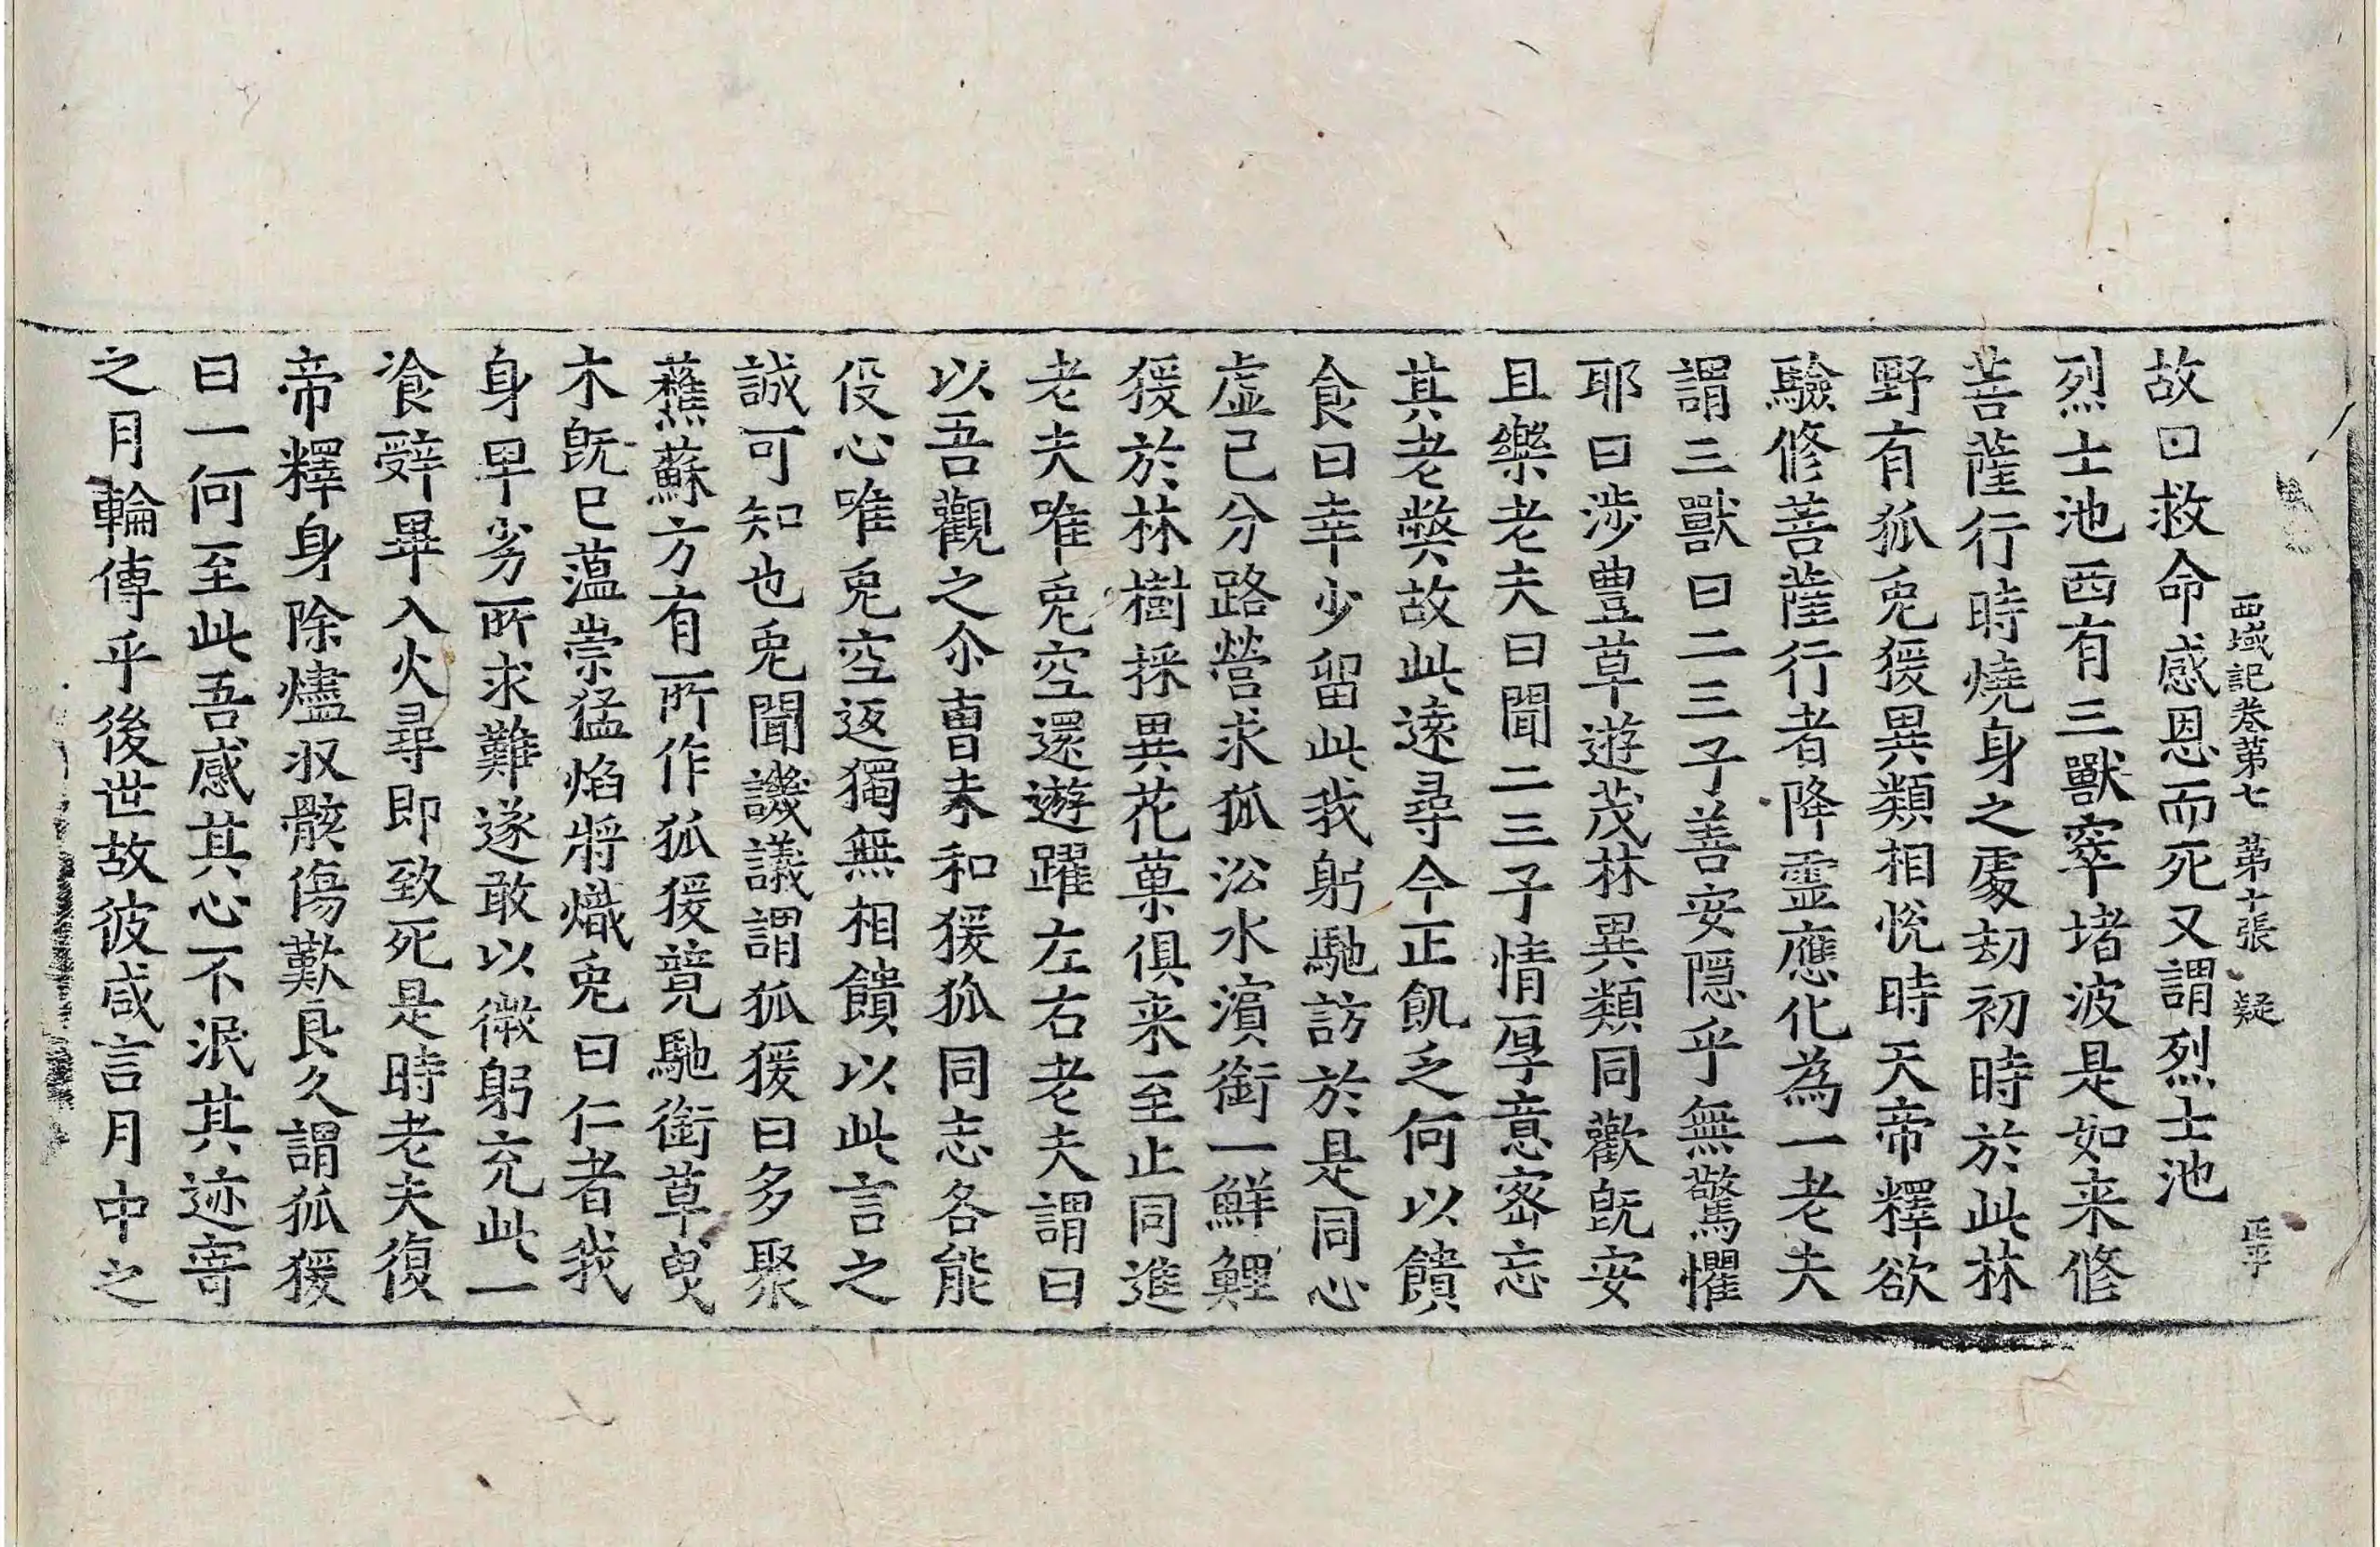 西域記卷第七 第十張 疑
故曰救命感恩而死又謂烈士池
烈士池西有三獸窣堵波是如来修
菩薩行時燒身之處劫初時於此林
野有狐兎猨異類相恱時天帝釋欲
驗修菩薩行者降靈應化為一老夫
謂三獸曰二三子善安隱乎無驚懼
耶曰涉豊草遊茂林異類同歡旣安
且樂老夫曰聞二三子情厚意密忘
其老弊故此遠尋今正飢乏何以饋
食曰幸少留此我躬馳訪於是同心
虛己分路營求狐㳂水濱銜一鮮鯉
猨於林樹採異花菓俱来至止同進
老夫唯兎空還遊躍左右老夫謂曰
以吾觀之尒曺未和猨狐同志各能
役心唯兎空返獨無相饋以此言之
誠可知也兎聞譏議謂狐猨曰多聚
蘸蘇方有所作狐猨競馳銜草曳
木旣已蕰崇猛焰將熾兎曰仁者我
身卑劣所求難遂敢以微躬充此一
飡辤畢入火尋即致死是時老夫復
帝釋身除燼収骸傷歎良久謂狐猨
曰一何至此吾感其心不泯其迹寄
之月輪傳乎後世故彼咸言月中之